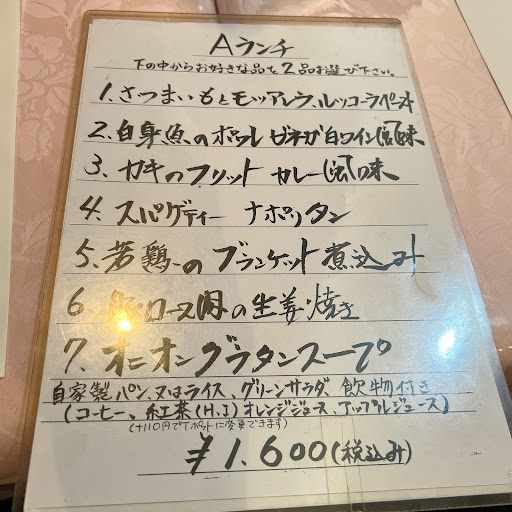 Aランチ
下の中からお好きな品を2品お選び下さい。
1.さつまいもとモッツァレラ、ルッコーラのピザ
2.白身魚のポワレ ビネガ白ワイン風味
3.カキのフリット カレー風味
4.スパゲティー ナポリタン
5.若鶏のブランケット煮込み
6.豚ロース肉の生姜焼き
7.オニオングラタンスープ
自家製パン又はライス、グリーンサラダ 飲物付き
(コーヒー、紅茶(H.I)オレンジジュース、アップルジュース)
(+110円でTポットに変更できます)
¥1,600(税込み)